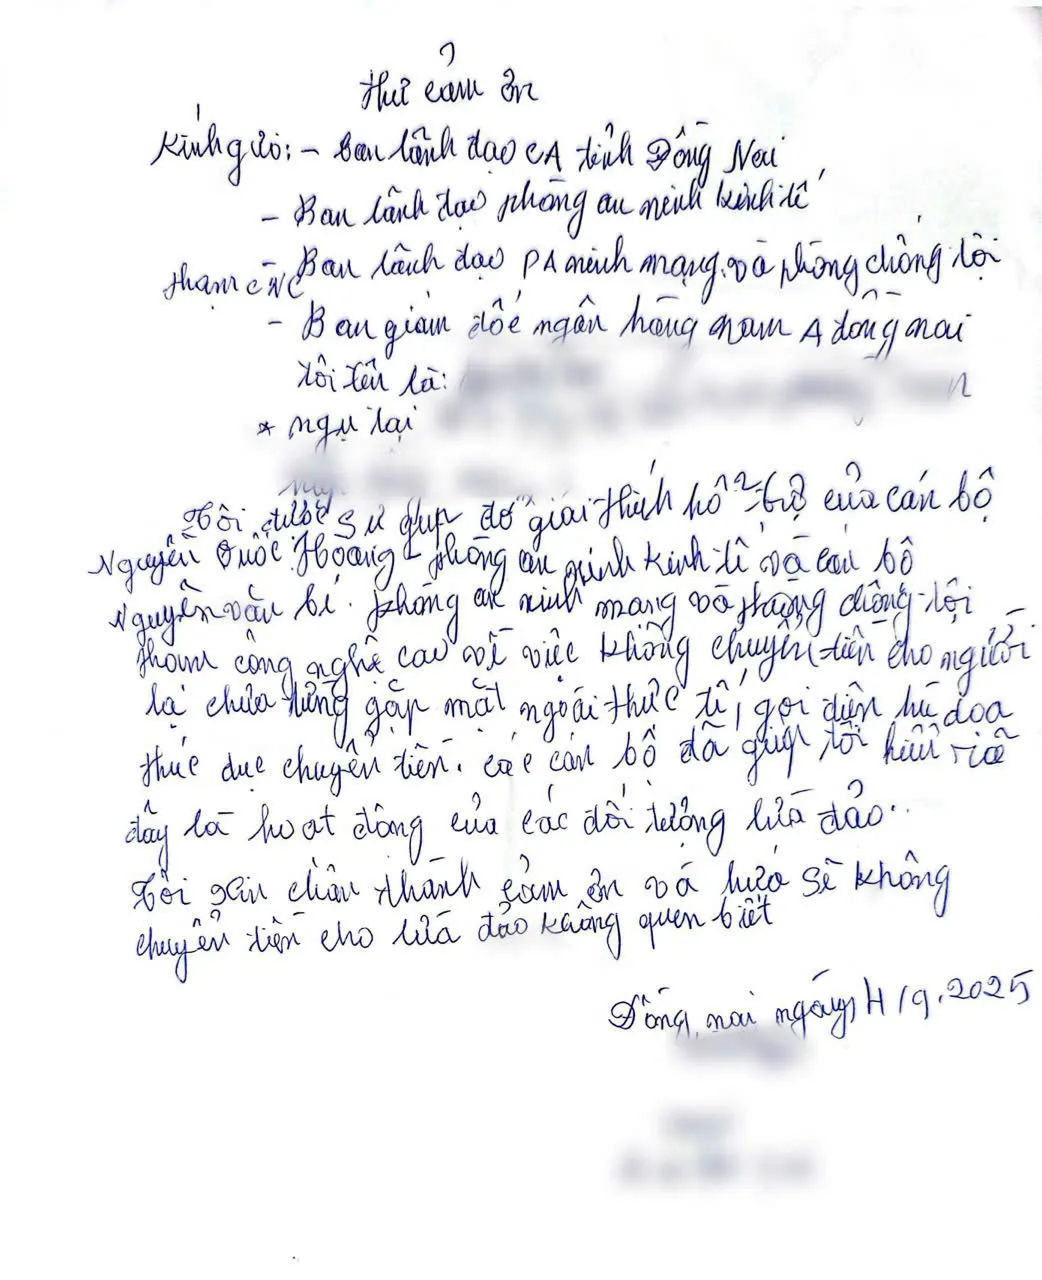 Thư cảm ơn
Kính gửi: - Ban lãnh đạo CA tỉnh Đồng Nai
- Ban lãnh đạo phòng an ninh kinh tế
Ban lãnh đạo PA ninh mạng và phòng chống tội
phạm CNC
- Ban giám đốc ngân hàng nam A đồng nai
tôi tên là:
* ngụ tại
Tôi được sự giúp đỡ giải thích hỗ trợ của cán bộ
Nguyễn Quốc Hoàng - phòng an ninh kinh tế và cán bộ
Nguyễn văn bí. phòng an ninh mạng và phòng chống tội
phạm công nghệ cao về việc không chuyển tiền cho người
lạ chưa từng gặp mặt ngoài thực tế, gọi điện hù dọa
thúc dục chuyển tiền. các cán bộ đã giúp tôi hiểu rõ
đây là hoạt động của các đối tượng lừa đảo..
Tôi xin chân thành cảm ơn và hứa sẽ không
chuyển tiền cho lừa đảo không quen biết
Đồng nai ngày 4/9.2025